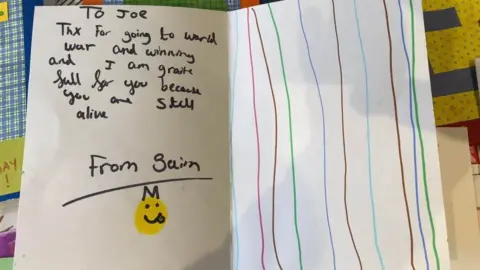 To Joe
Thx For going to world
war and winning
and I am graite
full for you because
you are still
alive
From
AY
!